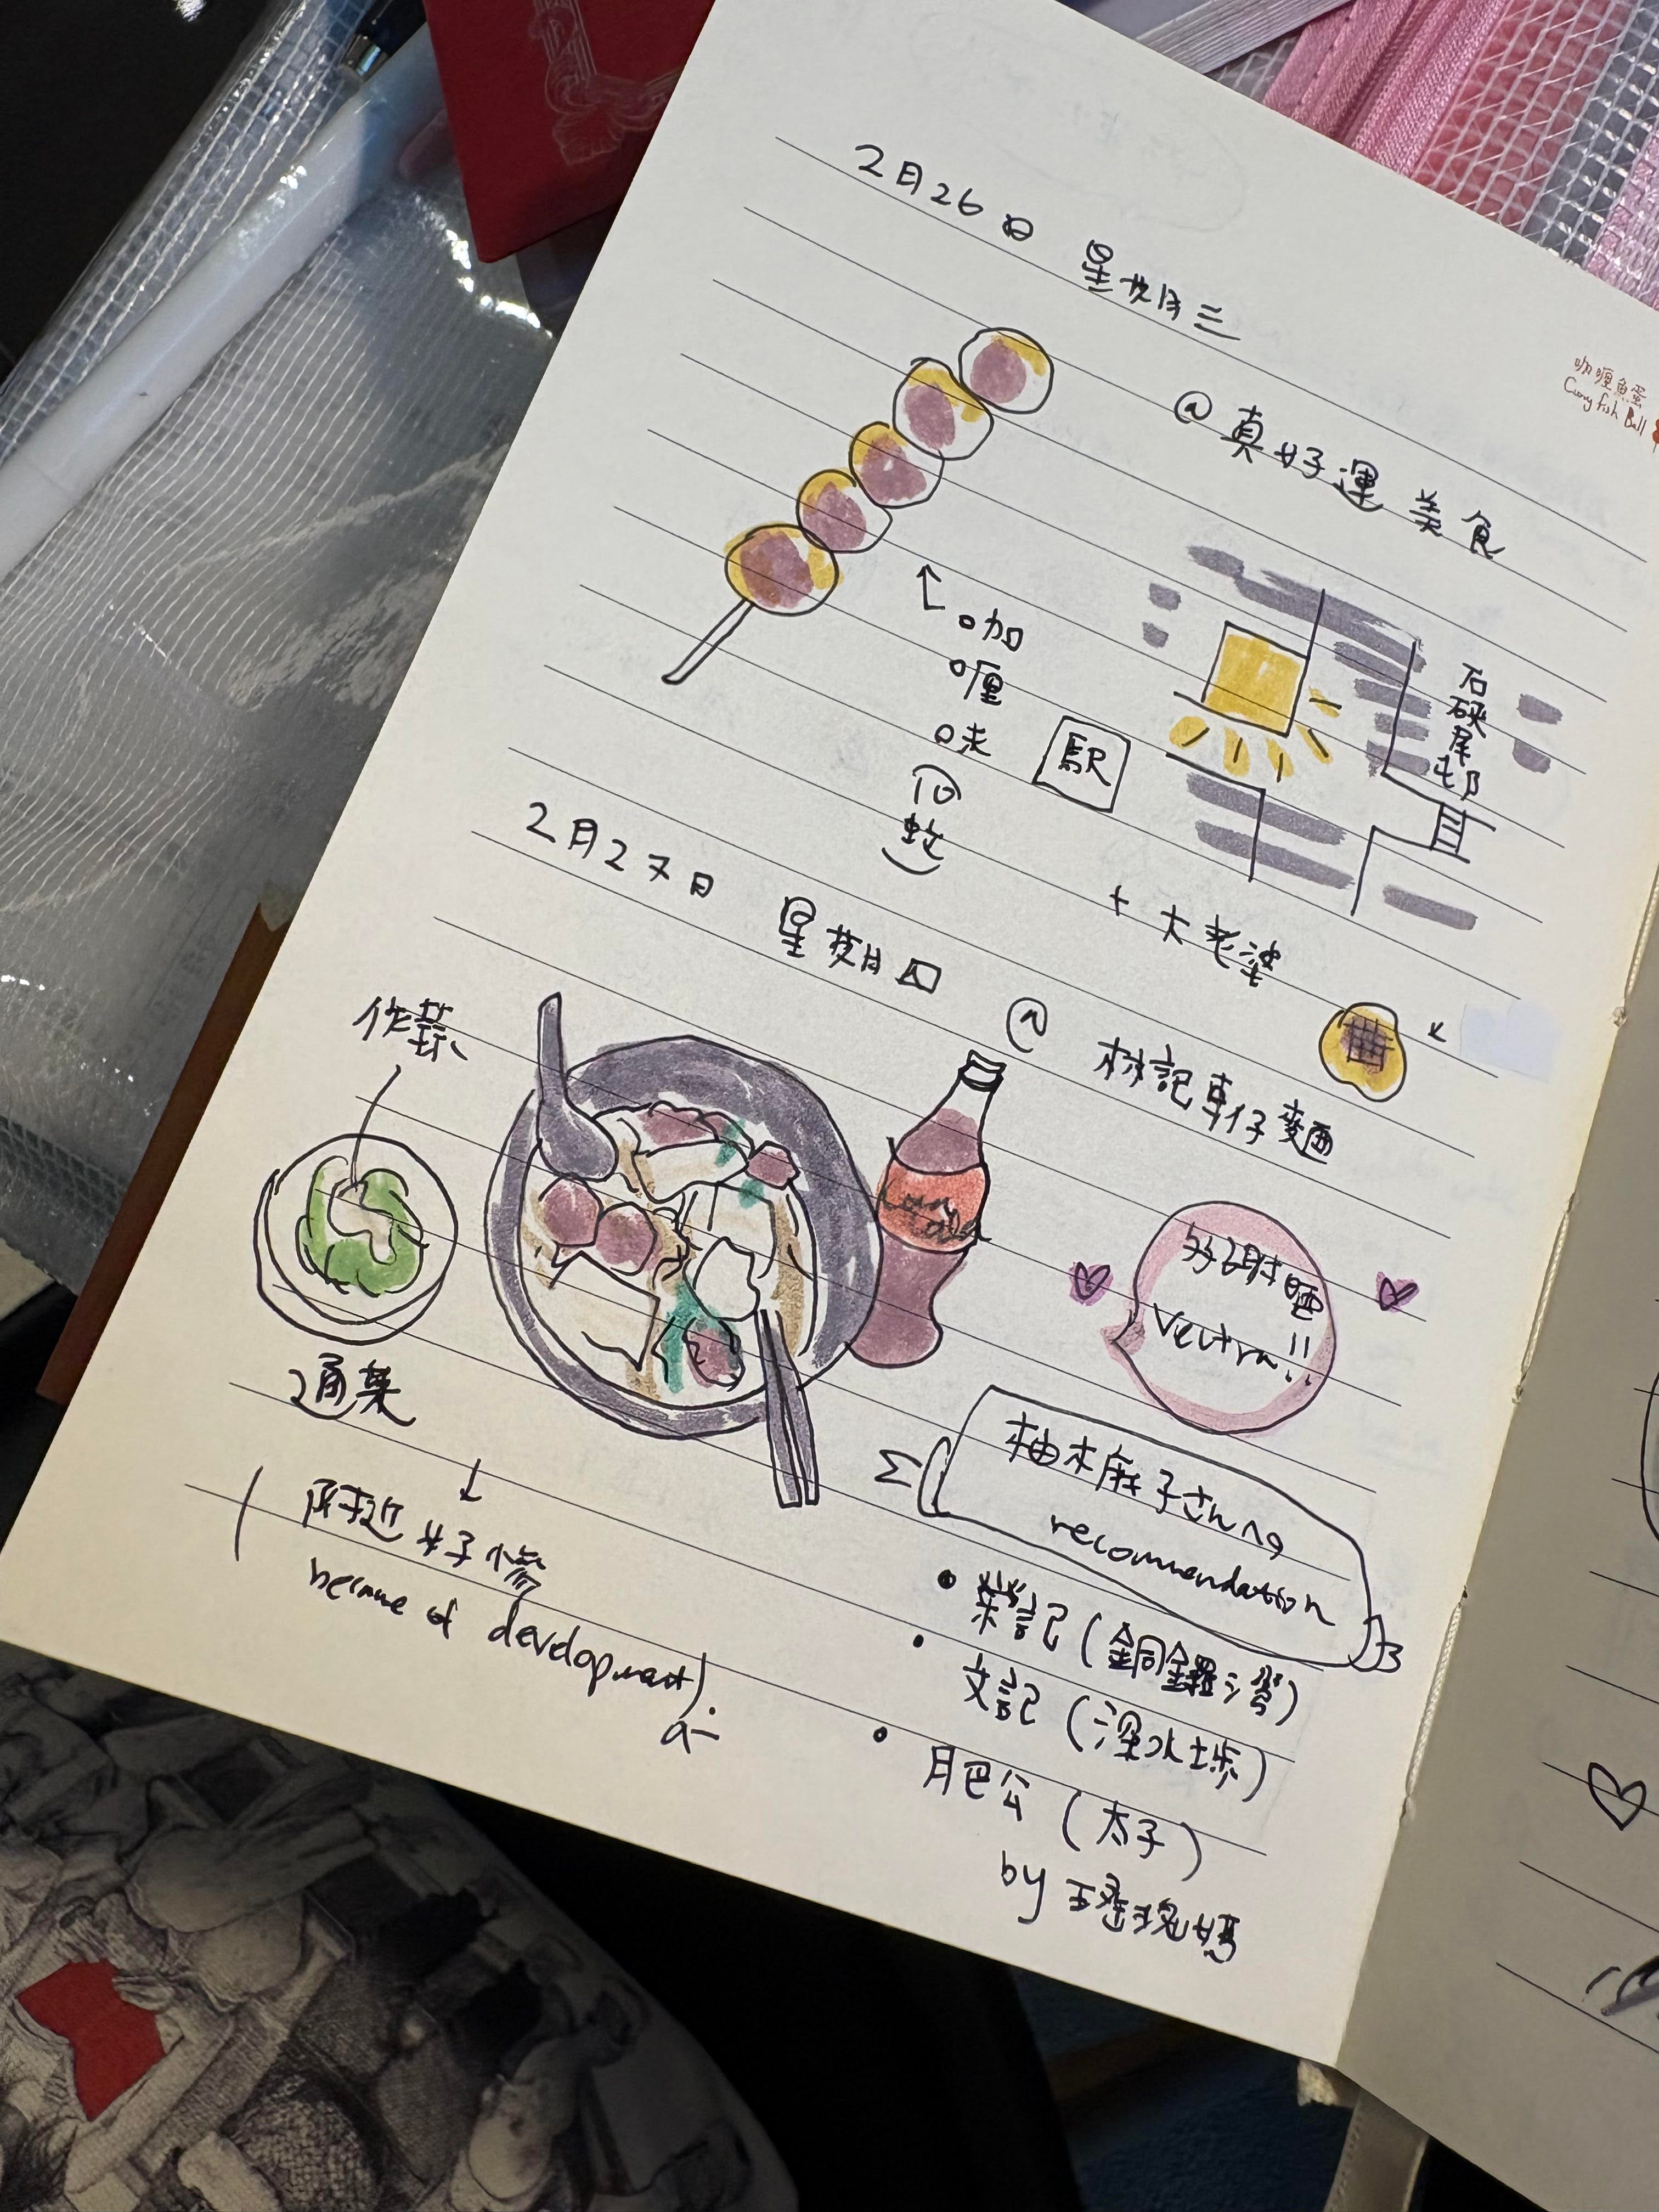 2月26日 星期三
咖喱魚蛋
Curry fish Ball
@ 真好運美食
↑
咖
喱
味
駅
石
硤
尾
邨
+ 大老婆
2月27日 星期四
@ 林記車仔麵
炸蒜
通菜
Vectra!!
附近好慘
because of development)
柚木麻子さんの
recommendation
• 榮記(銅鑼灣)
• 文記(深水埗)
• 肥公(太子)
by